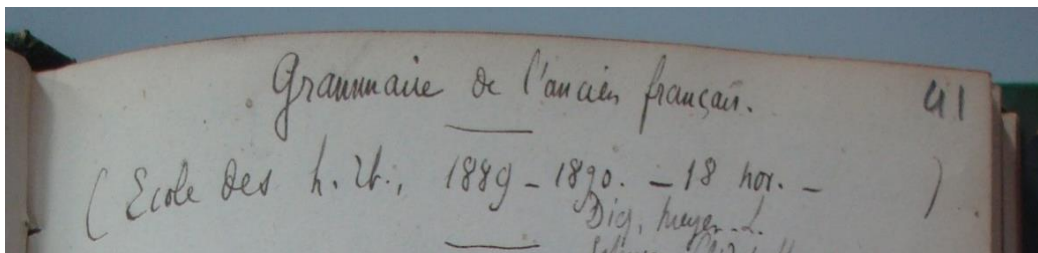 Grammaire de l'ancien français. 41
(Ecole des h. Et., 1889-1890. - 18 nov. - )
Diez, Meyer-L.